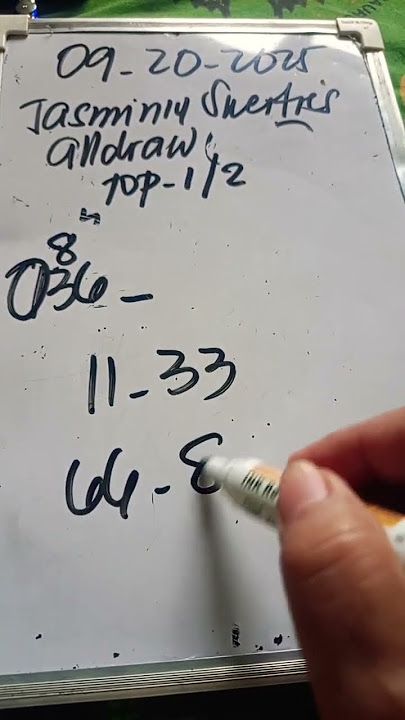 09-20-2025
Jasminly Swertris
alldraw
TOP-1/2
8
036-
11-33
66-8